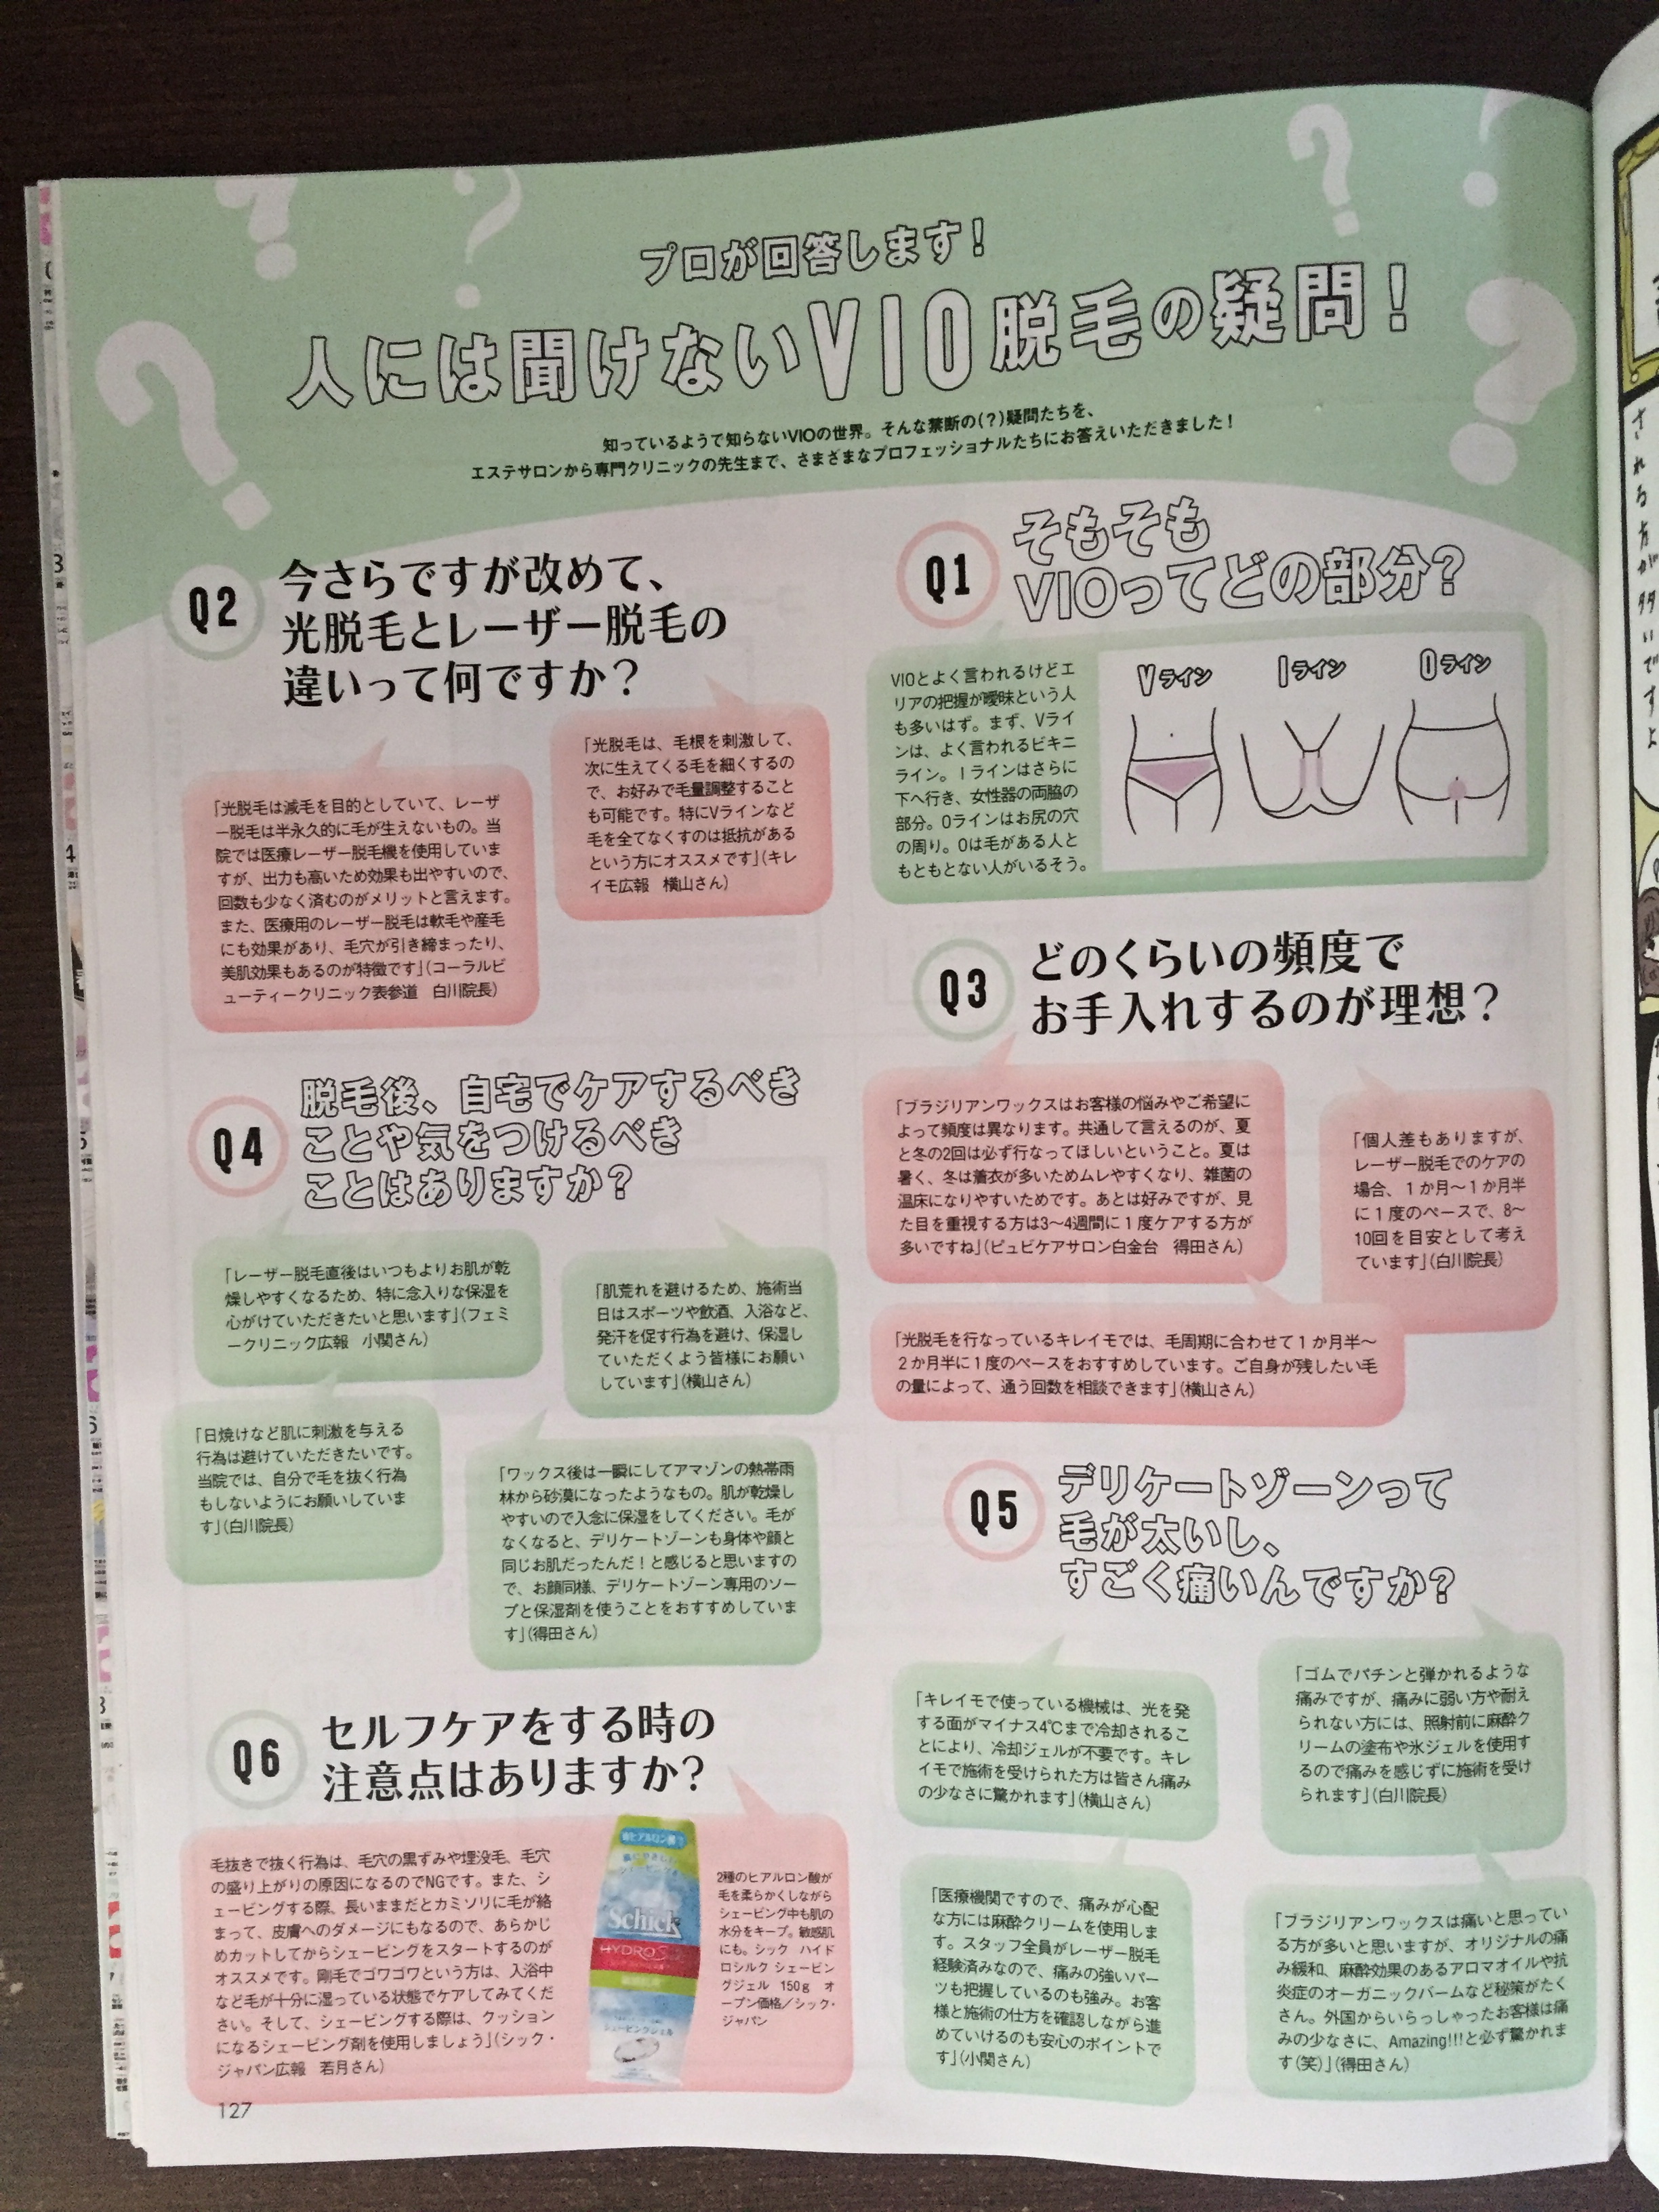 プロが回答します!
人には聞けないVIO脱毛の疑問!
知っているようで知らないVIOの世界。そんな禁断の(?)疑問たちを、
エステサロンから専門クリニックの先生まで、さまざまなプロフェッショナルたちにお答えいただきました!
Q1
そもそも
VIOってどの部分?
VIOとよく言われるけどエ
リアの把握が曖昧という人
も多いはず。まず、Vライ
ンは、よく言われるビキニ
ライン。Iラインはさらに
下へ行き、女性器の両脇の
部分。Oラインはお尻の穴
の周り。Oは毛がある人と
もともとない人がいるそう。
Vライン
Iライン
Oライン
Q2
今さらですが改めて、
光脱毛とレーザー脱毛の
違いって何ですか?
「光脱毛は、毛根を刺激して、
次に生えてくる毛を細くするの
で、お好みで毛量調整すること
も可能です。特にVラインなど
毛を全てなくすのは抵抗がある
という方にオススメです」(キレ
イモ広報 横山さん)
「光脱毛は減毛を目的としていて、レーザ
ー脱毛は半永久的に毛が生えないもの。当
院では医療レーザー脱毛機を使用していま
すが、出力も高いため効果も出やすいので、
回数も少なく済むのがメリットと言えます。
また、医療用のレーザー脱毛は軟毛や産毛
にも効果があり、毛穴が引き締まったり、
美肌効果もあるのが特徴です」(コーラルビ
ューティークリニック表参道 白川院長)
Q3
どのくらいの頻度で
お手入れするのが理想?
「ブラジリアンワックスはお客様の悩みやご希望に
よって頻度は異なります。共通して言えるのが、夏
と冬の2回は必ず行なってほしいということ。夏は
暑く、冬は着衣が多いためムレやすくなり、雑菌の
温床になりやすいためです。あとは好みですが、見
た目を重視する方は3〜4週間に1度ケアする方が
多いですね」(ピュビケアサロン白金台 得田さん)
「個人差もありますが、
レーザー脱毛でのケアの
場合、1か月〜1か月半
に1度のペースで、8〜
10回を目安として考え
ています」(白川院長)
「光脱毛を行なっているキレイモでは、毛周期に合わせて1か月半〜
2か月半に1度のペースをおすすめしています。ご自身が残したい毛
の量によって、通う回数を相談できます」(横山さん)
Q4
脱毛後、自宅でケアするべき
ことや気をつけるべき
ことはありますか?
「レーザー脱毛直後はいつもよりお肌が乾
燥しやすくなるため、特に念入りな保湿を
心がけていただきたいと思います」(フェミ
ークリニック広報 小関さん)
「肌荒れを避けるため、施術当
日はスポーツや飲酒、入浴など、
発汗を促す行為を避け、保湿し
ていただくよう皆様にお願い
しています」(横山さん)
「日焼けなど肌に刺激を与える
行為は避けていただきたいです。
当院では、自分で毛を抜く行為
もしないようにお願いしていま
す」(白川院長)
「ワックス後は一瞬にしてアマゾンの熱帯雨
林から砂漠になったようなもの。肌が乾燥し
やすいので入念に保湿をしてください。毛が
なくなると、デリケートゾーンも身体や顔と
同じお肌だったんだ!と感じると思いますの
で、お顔同様、デリケートゾーン専用のソー
プと保湿剤を使うことをおすすめしていま
す」(得田さん)
Q5
デリケートゾーンって
毛が太いし、
すごく痛いんですか?
「キレイモで使っている機械は、光を発
する面がマイナス4℃まで冷却されるこ
とにより、冷却ジェルが不要です。キレ
イモで施術を受けられた方は皆さん痛み
の少なさに驚かれます」(横山さん)
「ゴムでパチンと弾かれるような
痛みですが、痛みに弱い方や耐え
られない方には、照射前に麻酔ク
リームの塗布や氷ジェルを使用す
るので痛みを感じずに施術を受け
られます」(白川院長)
「医療機関ですので、痛みが心配
な方には麻酔クリームを使用しま
す。スタッフ全員がレーザー脱毛
経験済みなので、痛みの強いパー
ツも把握しているのも強み。お客
様と施術の仕方を確認しながら進
めていけるのも安心のポイントで
す」(小関さん)
「ブラジリアンワックスは痛いと思ってい
る方が多いと思いますが、オリジナルの痛
み緩和、麻酔効果のあるアロマオイルや抗
炎症のオーガニックバームなど秘策がたく
さん。外国からいらっしゃったお客様は痛
みの少なさに、Amazing!!!と必ず驚かれま
す(笑)」(得田さん)
Q6
セルフケアをする時の
注意点はありますか?
毛抜きで抜く行為は、毛穴の黒ずみや埋没毛、毛穴
の盛り上がりの原因になるのでNGです。また、シ
ェービングする際、長いままだとカミソリに毛が絡
まって、皮膚へのダメージにもなるので、あらかじ
めカットしてからシェービングをスタートするのが
オススメです。剛毛でゴワゴワという方は、入浴中
など毛が十分に湿っている状態でケアしてみてくだ
さい。そして、シェービングする際は、クッション
になるシェービング剤を使用しましょう」(シック・
ジャパン広報 若月さん)
Schick
HYDRO
シェービングジェル
2種のヒアルロン酸が
毛を柔らかくしながら
シェービング中も肌の
水分をキープ。敏感肌
にも。シック ハイド
ロシルク シェービン
グジェル 150g オ
ープン価格/シック・
ジャパン
127
される方が多いですよ